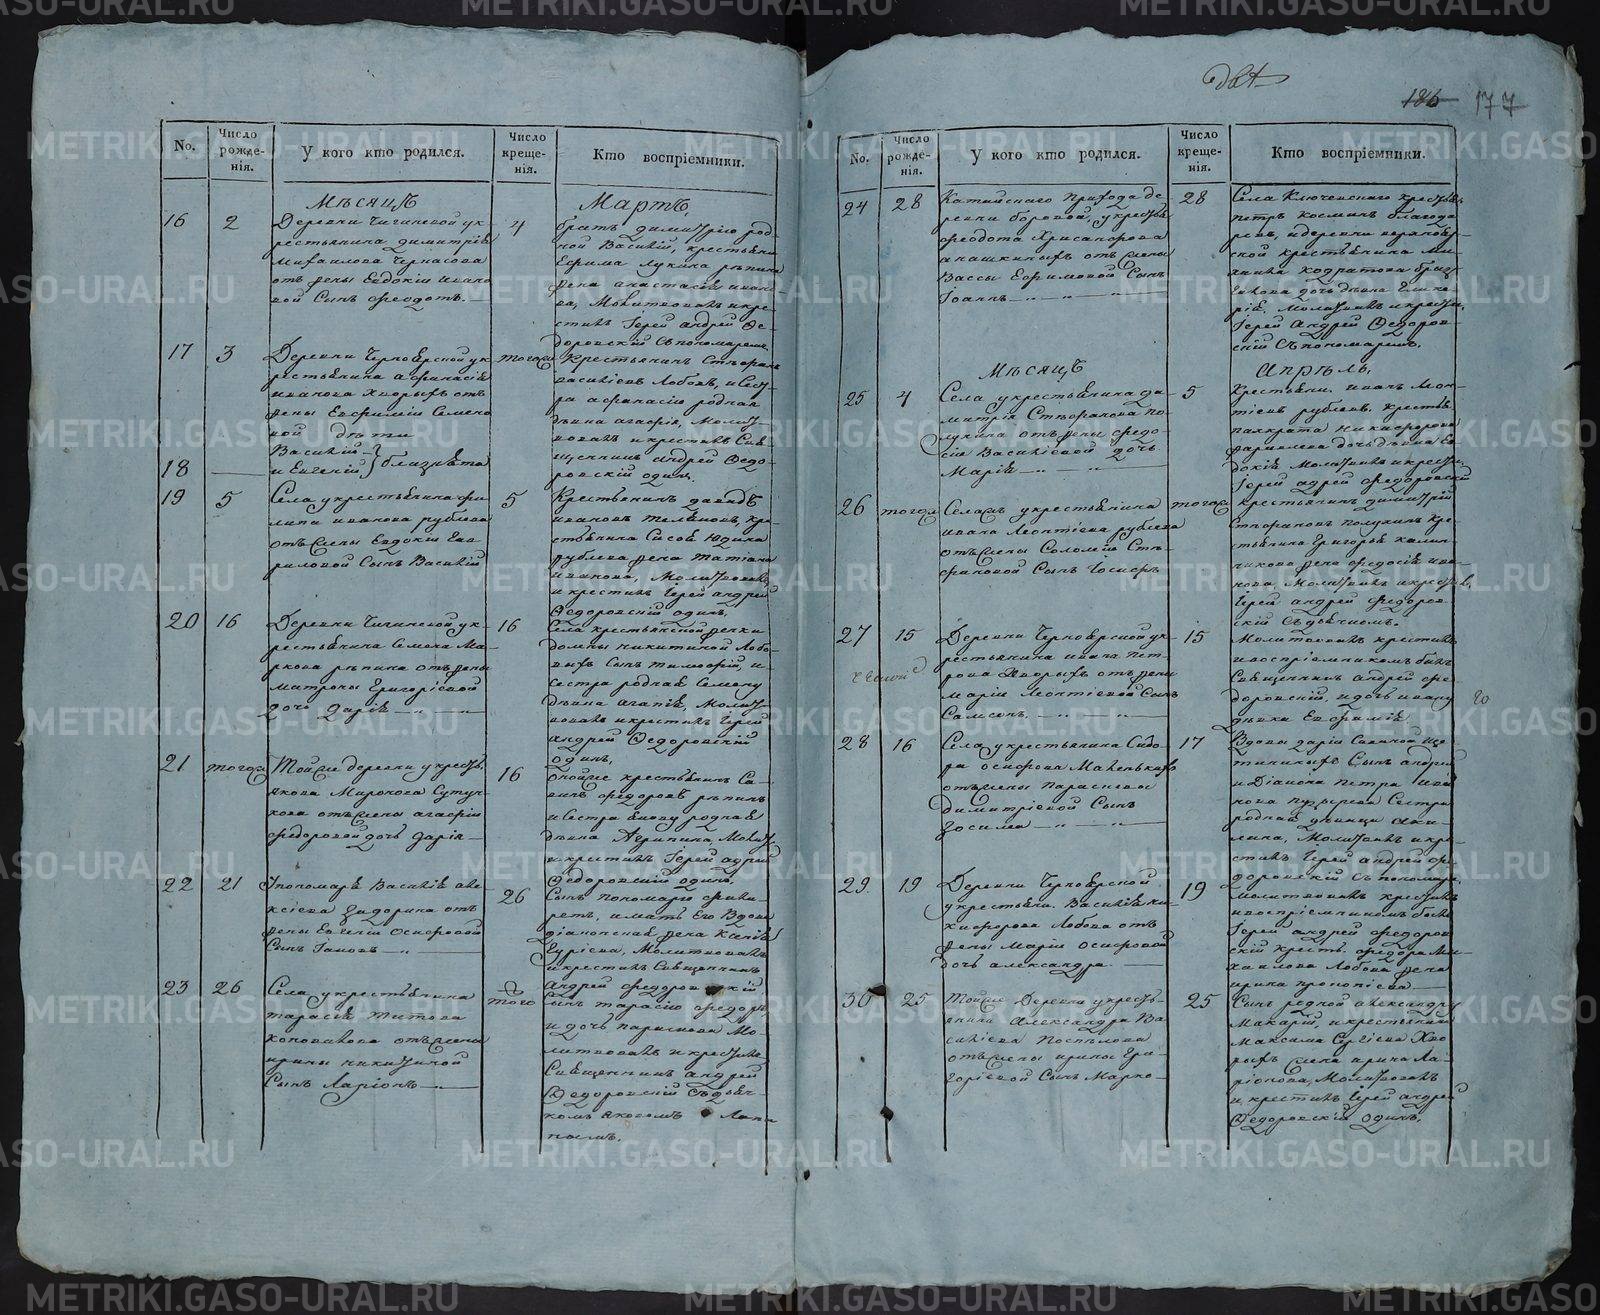 два
186 177
No.
Число рожде-нія.
У кого кто родился.
Число креще-нія.
Кто воспріемники.
Мѣсяцъ
Мартъ,
16
2
Деревни Чигиневой у к
рестьянина Димитрія
Михаилова Черкасова
отъ жены Евдокіи Ивано
вой Сынъ Феодотъ.
4
братъ Димитрію род
ной Василій, крестьяни
Ефима Лукина Репина
жена Анастасія Ивано
ва, Молитвовалъ и кре
стилъ Іерей Андрей Ѳе
доровскій съ пономаремъ
17
3
Деревни Черноярской у к
рестьянина Афанасія
Иванова Хворыхъ отъ
жены Евфиміи Семено
вой дѣти
Василій
18
и Евгеній } близнята
тогожъ
Крестьянинъ Стефанъ
Василіевъ Лобовъ, и сест
ра Афанасію родная
дѣвка Агафія, Молит
вовалъ и крестилъ Свя
щенникъ Андрей Ѳедо
ровскій одинъ.
19
5
Села у крестьянина Фи
липа Иванова Рублева
отъ жены Евдокіи Гав
риловой Сынъ Василій
5
Крестьянинъ Давидъ
Ивановъ, кре
стьянина Сисоя Юдина
Рублева жена Татіана
Иванова, Молитвовалъ
и крестилъ Іерей Андрей
Ѳедоровскій одинъ,
20
16
Деревни Чигиневой у к
рестьянина Семена Ма
ркова Репина отъ жены
Матроны Григоріевой
дочь Дарія
16
Села крестьянской жонки
Домны Никитиной Лобо
выхъ Сынъ Тимофей, и
сестра родная Семену
дѣвка Агапія, Молит
вовалъ и крестилъ Іерей
Андрей Ѳедоровскій
одинъ,
21
тогожъ
Тойже деревни у кресть.
Якова Миронова Сутуч
кова отъ жены Агафіи
Федоровой дочь Дарія
16
Онойже крестьянинъ Са
Федоровъ Репинъ
и сестра Якову родная
дѣвка Агрипина, Молит.
и крестилъ Іерей Адрей
Ѳедоровскій одинъ,
22
21
Упономаря Василія Але
ксіева Задорина отъ
жены Евгеніи Осиповой
Сынъ Іаковъ
26
Сынъ пономарю Филя
ретъ, и мать его Вдова
діаконская жена Ксенія
Гуріева, Молитвовалъ
и крестилъ Священникъ
Андрей Федоровскій
23
26
Села у крестьянина
Тарасія Титова
Коновалова отъ жены
Ирины Никитиной
Сынъ Ларіонъ
того
Сынъ Тарасію Федоръ,
и дочь Парасковья Мо
литвовалъ и крестилъ
Священникъ Андрей
Ѳедоровскій Съ дьяч
комъ Яковомъ
No.
Число рожде-нія.
У кого кто родился.
Число креще-нія.
Кто воспріемники.
24
28
Катайского Прихода де
ревни Боровой, у кресть.
Феодота Хрисанфова
Анашкиныхъ отъ жены
Вассы Ефимовой Сынъ
Іоаннъ
28
Села Ключевского кресть.
Петръ Космин
и деревни Чернояр
ской крестьянина Ми
хаила Кодратова
дочь дѣвка Глике
рія, Молитвовалъ и крести.
Іерей Андрей Ѳедоров
скій Съ пономаремъ,
Мѣсяцъ
Апрѣль,
25
4
Села у крестьянина Ди
митрія Стефанова По
лукина отъ жены Федо
сіи Василіевой дочь
Марія
5
Крестьяни. Иванъ Леон
тіевъ Рублевъ. крестья.
Панкрата Никифорова
дочь дѣвка Ев
докія Молитвовалъ и крести.
Іерей Адрей Федоровскій
26
тогож
Селажъ у крестьянина
Ивана Леонтіева Рублева
отъ жены Соломіи Сте
фановой Сынъ Іосифъ
тогожъ
Крестьянинъ Димитрій
Стефановъ Полукинъ Кре
стьянина Григорья Калин
никова жена Федосія Ива
нова, Молитвовалъ и крести.
Іерей Андрей Федоров
скій Съ дьячкомъ.
27
15
Деревни Черноярской у к
рестьянина Ивана Пет
рова Хворыхъ отъ жены
Маріи Леонтіевой Сынъ
Самсонъ.
15
Молитвовалъ крестилъ
и воспріемникомъ былъ
Священникъ Андрей Фе
доровскій, и дочь Ивану
дѣвка Евфимія
28
16
Села у крестьянина Сидо
ра Осипова Маленькихъ
отъ жены Парасковьи
Димитріевой Сынъ
Зосима
17
Вдовы Даріи Савиной Ще
тининыхъ Сынъ Андрей
и Діакона Петра Ива
нова Пузырева Сестра
родная Аки
лина, Молитвовалъ и кре
стилъ Іерей Андрей Фе
доровскій Съ пономаре.
29.
19
Деревни Черноярской
у крестьяни. Василія Ни
кифорова Лобова отъ
жены Маріи Осиповой
дочь Александра
19
Молитвовалъ крестилъ
и воспріемникомъ былъ
Іерей Андрей Федоров
скій кресть. Федора Ми
хаилова Лобова жена
Ирина Прокопіева
30
25
Тойже Деревни у кресть
янина Александра Ва
силіева Поспелова
отъ жены Ирины Гри
горіевой Сынъ Марко
25
Сынъ родной Александру
Макарій, и крестьянина
Максима Сергіева Хво
рыхъ жена Ирина Ла
ріонова, Молитвовалъ
и крестилъ Іерей Андрей
Ѳедоровскій Одинъ,
METRIKI.GASO-URAL.RU